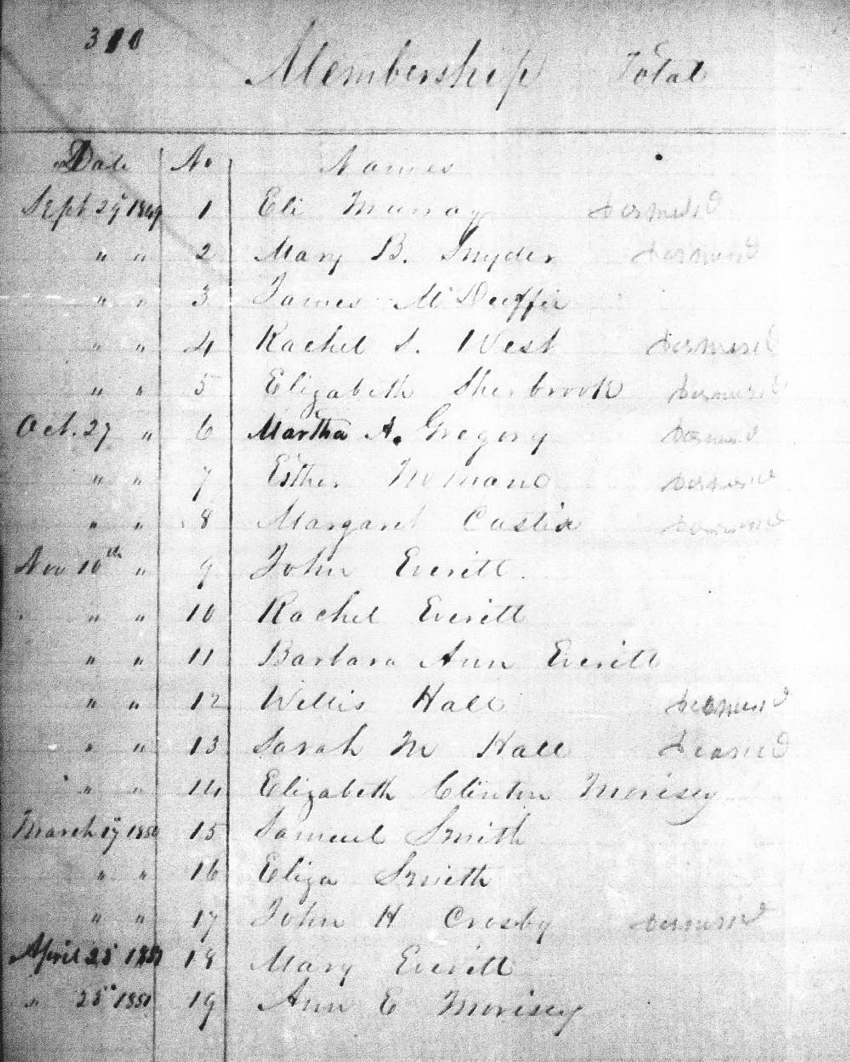 310
Membership Total
Date No Names
Sept 29 1849 1 Eli Murray
" " 2 Mary B. Snyder
" " 3 James McDuffie
" " 4 Rachel S. West
" " 5 Elizabeth Sherbrook
Oct. 27 " 6 Martha A. Gregory
" " 7 Esther
" " 8 Margaret
Nov 10th " 9 John Everitt
" " 10 Rachel Everitt
" " 11 Barbara Ann Everitt
" " 12 Willis Hall
" " 13 Sarah M Hall
" " 14 Elizabeth Clinton Morisey
March 17 1850 15 Samuel Smith
" " 16 Eliza Smith
" " 17 John H Crosby
April 25 18 Mary Everitt
" 25 1851 19 Ann E Morisey